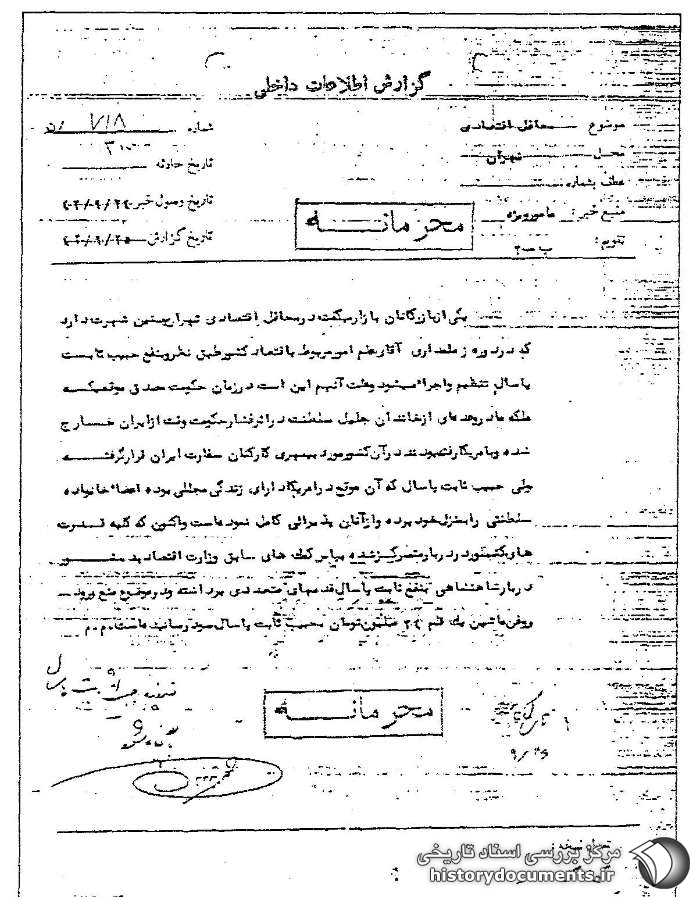 گزارش اطلاعات داخلی
موضوع محافل اقتصادی
محل تهران
عطف بشماره
منبع خبر: مامور ویژه
تقویم: ب-۲
شماره ۷۱۸
۳۰۰
تاریخ حادثه
تاریخ وصول خبر
تاریخ گزارش
محرمانه
یکی از بازرگانان بازار میگفت در محافل اقتصادی تهران چنین شهرت دارد
که در دوره زمامداری آقای علم امور مربوط باقتصاد کشور طبق نظر و بنفع حبیب ثابت
پاسال تنظیم و اجراء میشود و علت آنهم این است در زمان حکومت مصدق موقعیکه
ملکه مادر و عده‌ای از خاندان جلیل سلطنت در اثر فشار حکومت وقت از ایران خارج
شده و بامریکا رفته بودند در آن کشور مورد بیمهری کارکنان سفارت ایران قرار گرفته
ولی حبیب ثابت پاسال که آن موقع در امریکا دارای زندگی مجللی بوده اعضاء خانواده
سلطنتی را بمنزل خود برده و از آنان پذیرائی کامل نموده است و اکنون که کلیه قدرت
های کشور در دربار متمرکز شده بپاس کمک های سابق وزارت اقتصاد بدستور
دربار شاهنشاهی بنفع ثابت پاسال قدمهای متعددی برداشته و در موضوع منع ورود
روغن ماشین یک قلم ۲۰ میلیون تومان بحبیب ثابت پاسال سود رسانیده است. م.م
محرمانه
ثابت پاسال
۹/۲۶
مرکز بررسی اسناد تاریخی
historydocuments.ir